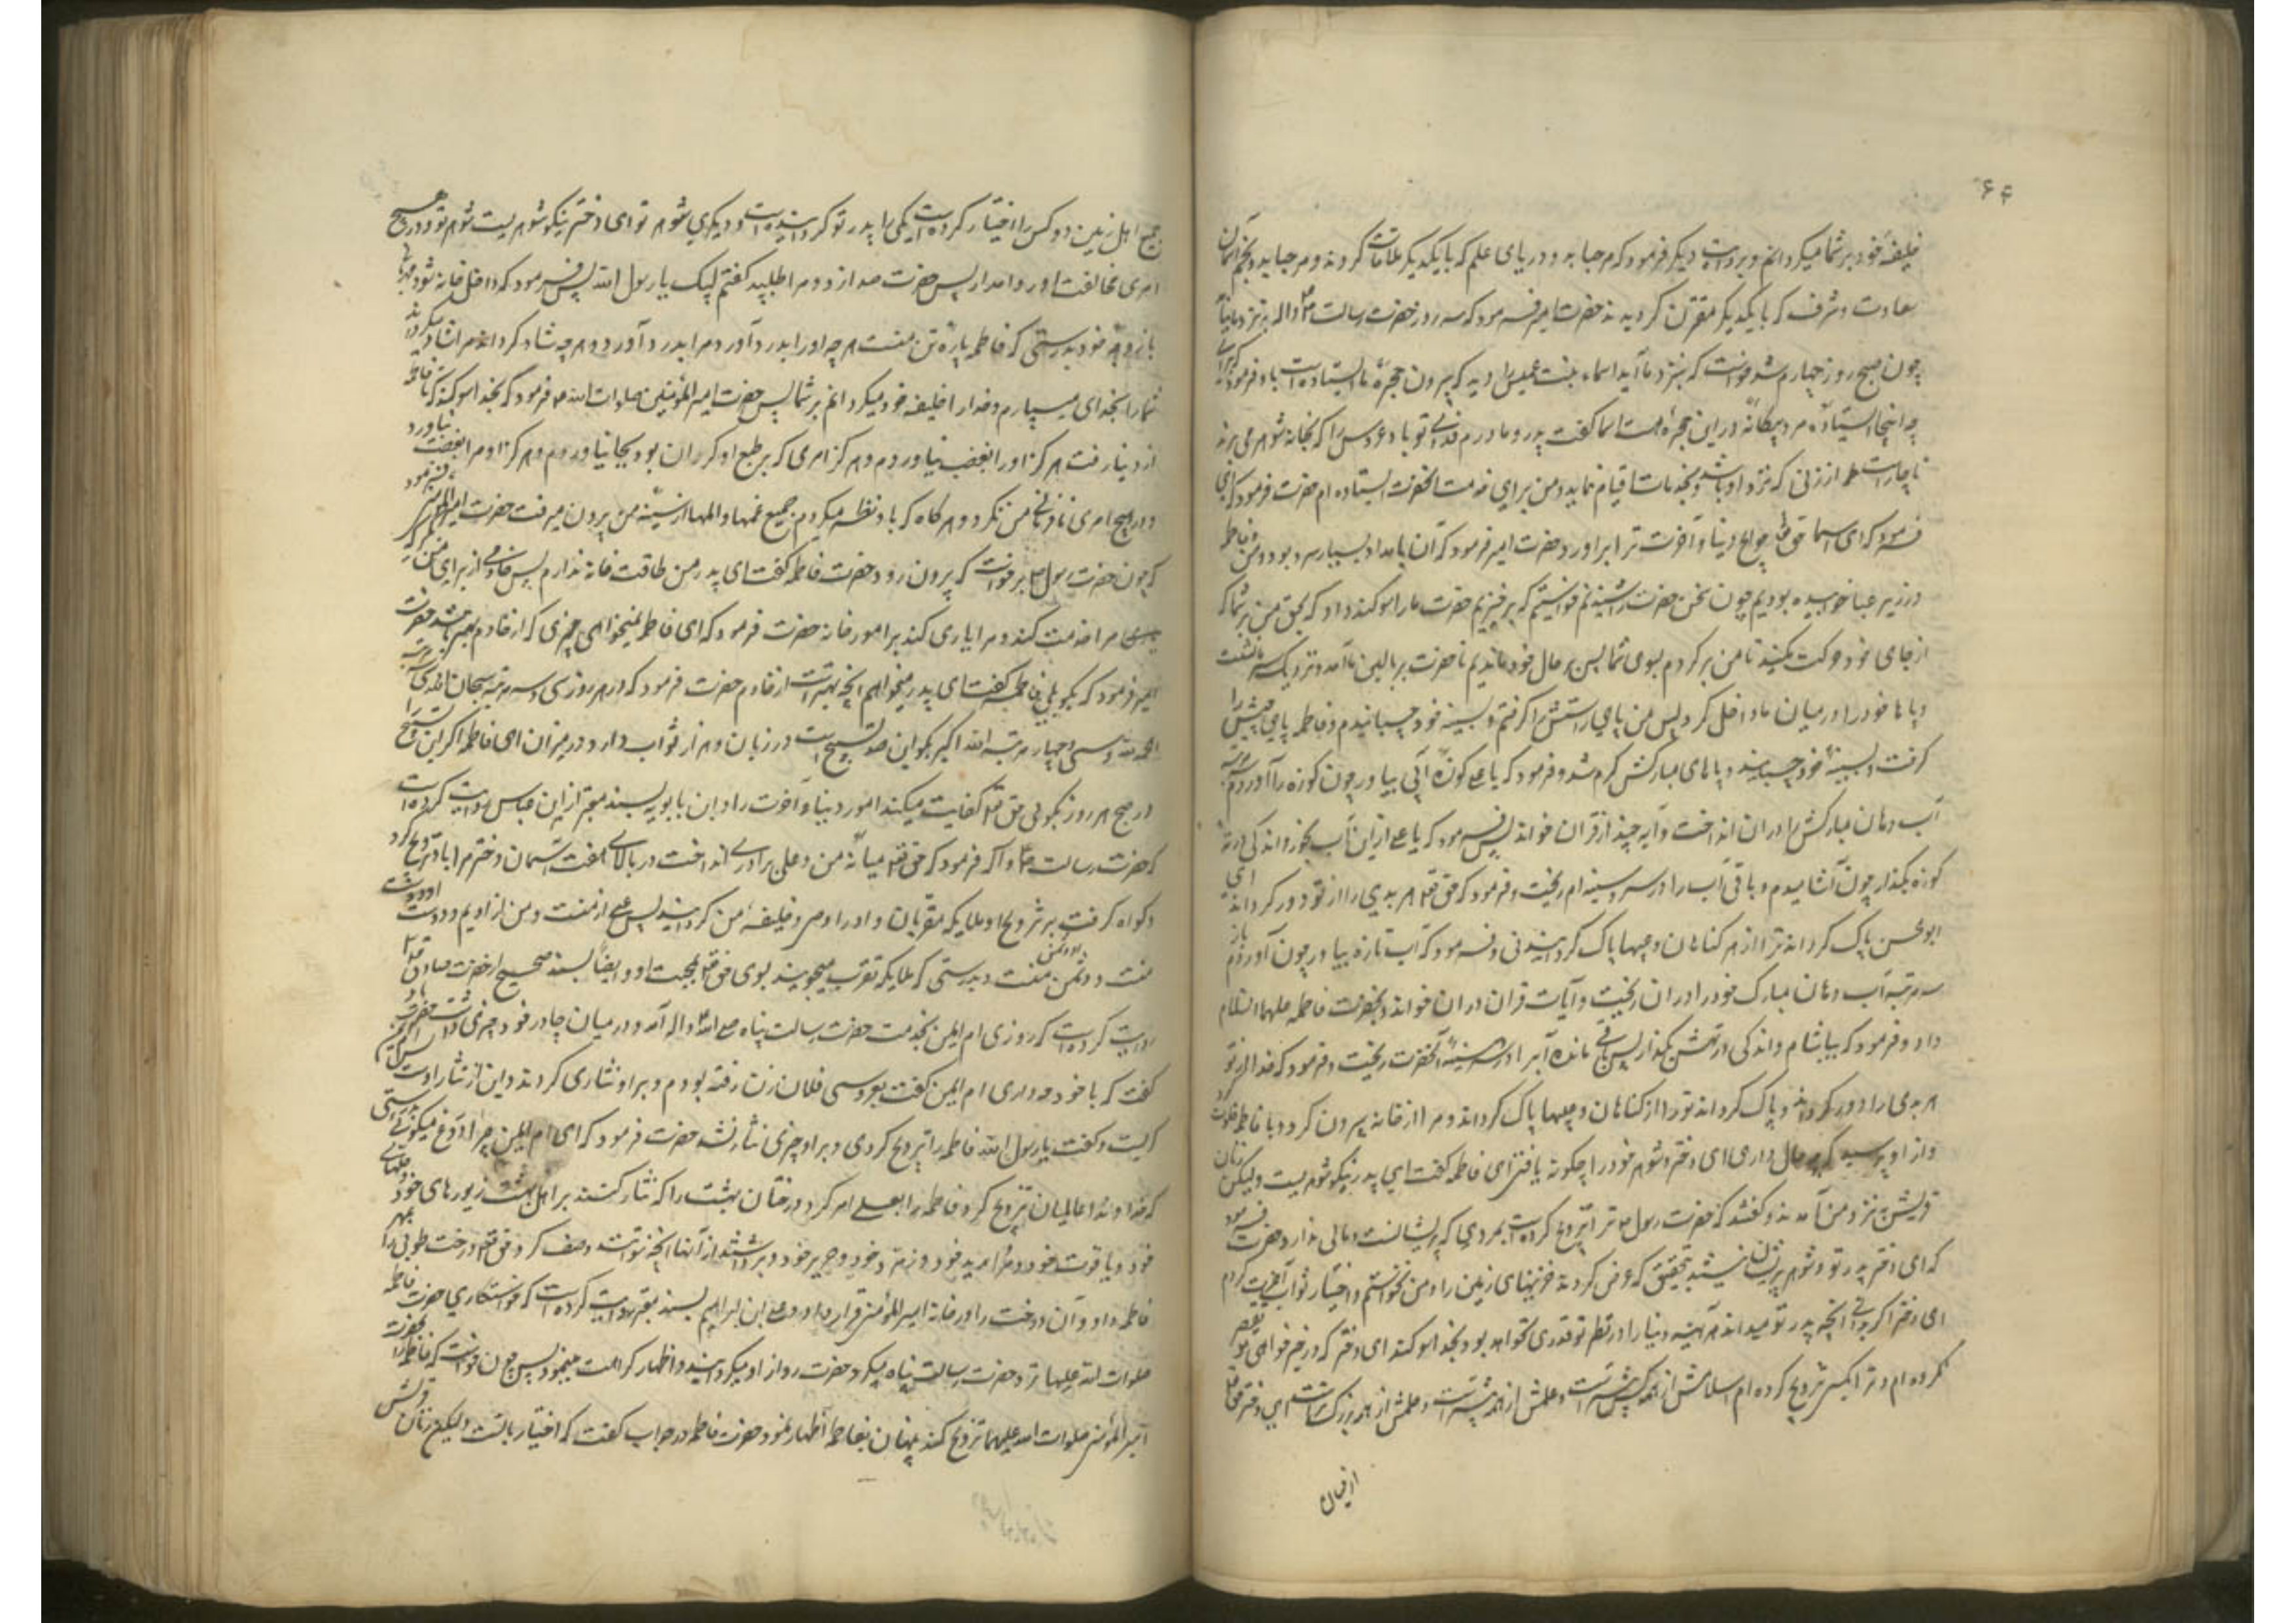 ۶۴
خلیفهٔ خود بر شما میکردانم و بروایت دیکر فرمود که مرحبا بدو دریای علم که با یکدیکر ملاقات کردند و مرحبا بدو نجم آسمان
سعادت و شرف که با یکدیکر مقترن کردیدند حضرت امیر فرمود که سه روز حضرت رسالت ص واله بنزد ما نیامد
چون صبح روز چهارم شد خواست که بنزد ما آید اسماء بنت عمیس را دید که بیرون حجره ما ایستاده است باو فرمود که چرا
در اینجا ایستاده مرد بیکانه در این حجره هست اسما کفت پدر و مادرم فدای تو باد عروس را که بخانه شوهر می برند
ناچار است او را از زنی که نزد او باشد و بخدمات او قیام نماید و من برای خدمت آنحضرت ایستاده ام حضرت فرمود که
فرمود که ای اسما حق تعالی حوایج دنیا و آخرت ترا برآورد حضرت امیر فرمود که آن بامداد بسیار سرد بود و من و فاطمه
در زیر عبا خوابیده بودیم چون سخن حضرت را شنیدیم خواستیم که برخیزیم حضرت ما را سوکند داد که بحق من بر شما که
از جای خود حرکت مکنید تا من برکردم بسوی شما پس بر حال خود ماندیم تا حضرت بر بالین ما آمد و نزدیک سر ما نشست
و پاها خود را در میان ما داخل کرد پس من پای راستش را کرفتم و بسینه خود چسبانیدم و فاطمه پای چپش را
کرفت و بسینهٔ خود چسبانید و پاهای مبارکش کرم شد و فرمود که یا علی کوزه آبی بیاور چون کوزه را آوردم سه مرتبه
آب دهان مبارکش را در آن انداخت و آیه چند از قرآن خواند پس فرمود که یا علی از این آب بخور و اندکی در ته
کوزه بکذار چون آشامیدم و باقی آب را در سر و سینه ام ریخت و فرمود که حق تعالی هر بدی را از تو دور کرداند ای
ابو الحسن پاک کرداند ترا از کناهان و عیبها پاک کردانیدنی و فرمود که آب تازه بیاور چون آوردم باز
سه مرتبه آب دهان مبارک خود را در آن ریخت و آیات قرآن در آن خواند و بحضرت فاطمه علیهما السلام
داد و فرمود که بیاشام و اندکی در تهش بکذار پس باقی مانده آب را در سر و سینهٔ آنحضرت ریخت و فرمود که خدا از تو
هر بدی را دور کرداند و پاک کرداند تو را از کناهان و عیبها پاک کرداند و مرا از خانه بیرون کرد و با فاطمه خلوت کرد
و از او پرسید که چه حال داری ای دختر و شوهر خود را چکونه یافتی فاطمه کفت ای پدر نیکو شوهریست ولیکن زنان
قریش نزد من آمدند و کفتند که حضرت رسول ص ترا تزویج کرده است بمردی که پریشانست و مالی ندارد حضرت فرمود
که ای دختر پدر تو و شوهر تو پریشان نیستند بتحقیق که عرض کردند خزینهای زمین را و من نخواستم و اختیار ثواب آخرت کردم
ای دختر اکر بدانی آنچه پدر تو میداند هرآینه دنیا را در نظر تو قدری نخواهد بود بخدا سوکند ای دختر که در خیرخواهی تو تقصیر
نکرده ام و ترا بکسی تزویج کرده ام اسلامش از همه کس پیشتر است و علمش از همه بیشتر است و حلمش از همه بزرکتر است ای دختر حق تعالی
از میان
جمیع اهل زمین دو کس را اختیار کرده است یکی را پدر تو کردانیده است و دیکری شوهر تو ای دختر نیکو شوهریست شوهر تو و در هیچ
امری مخالفت او روا مدار پس حضرت صدا زد و مرا طلبید کفتم لبیک یا رسول الله پس فرمود که داخل خانه شو و مهربانی
با زوجهٔ خود بدرستی که فاطمه پارهٔ تن منست هر چه او را بدرد آورد مرا بدرد آورد و هر چه شاد کرداند مرا شاد میکرداند
شما را بخدای میسپارم و خدا را خلیفه خود میکردانم بر شما پس حضرت امیر المؤمنین صلوات الله ع فرمود که بخدا سوکند که تا فاطمه
از دنیا رفت هرکز او را بغضب نیاوردم و هرکز امری که بر طبع او کران بود بجا نیاوردم و هرکز او مرا بغضب نیاورد
و در هیچ امری نافرمانی من نکرد و هرکاه که باو نظر میکردم جمیع غمها و المها از سینهٔ من بیرون میرفت حضرت امیر المؤمنین فرمود
که چون حضرت رسول ص برخواست که بیرون رود حضرت فاطمه کفت ای پدر من طاقت خانه ندارم پس خادمی از برای من بکیر که
مرا خدمت کند و مرا یاری کند بر امور خانه حضرت فرمود که ای فاطمه نمیخواهی چیزی که از خادم بهتر باشد حضرت
امیر فرمود که بکو بلی فاطمه کفت ای پدر میخواهم آنچه بهتر است از خادم حضرت فرمود که در هر روز سی و سه مرتبه سبحان الله و سی و سه مرتبه
الحمد لله و سی و چهار مرتبه الله اکبر بکو این صد تسبیح است در زبان و هزار ثواب دارد در میزان ای فاطمه اکر این تسبیح را
در صبح هر روز بکوئی حق تعالی کفایت میکند امور دنیا و آخرت را و ابن بابویه بسند معتبر از ابن عباس روایت کرده است
که حضرت رسالت ص واله فرمود که حق تعالی میانهٔ من و علی برادری انداخت در بالای هفت آسمان و دختر مرا باو تزویج کرد
و کواه کرفت بر تزویج او ملایکه مقربان و او را وصی و خلیفه من کردانید پس علی از منست و من از اویم و دوست او دوست
منست و دشمن او دشمن منست و بدرستی که ملایکه تقرب میجویند بسوی حق تعالی بمحبت او و ایضاً بسند صحیح از حضرت صادق
روایت کرده است که روزی ام ایمن بخدمت حضرت رسالت پناه صلی الله واله آمد و در میان چادر خود چیزی داشت حضرت باو
کفت که با خود چه داری ام ایمن کفت بعروسی فلان زن رفته بودم و بر او نثاری کردند و این از نثار اوست پس ام ایمن
کریست و کفت یا رسول الله فاطمه را تزویج کردی و بر او چیزی نثار نشد حضرت فرمود که ای ام ایمن چرا دروغ میکوئی بدرستی
که خداوند عالمیان تزویج کرد فاطمه را بعلی امر کرد درختان بهشت را که نثار کنند بر اهل بهشت زیورهای خود و حلهای
خود و یاقوت خود و مروارید خود و زمرد خود و حریر خود و برداشتند از آنها آنچه نتوانست وصف کرد و حق تعالی درخت طوبی را بمهر
فاطمه داد و آن درخت را در خانه امیر المؤمنین قرار داد و علی ابن ابراهیم بسند معتبر روایت کرده است که خواستکاری حضرت فاطمه
صلوات الله علیها نزد حضرت رسالت پناه میکرد حضرت رو از او میکردانید و اظهار کراهت مینمود پس چون خواست که فاطمه را بحضرت
امیر المؤمنین صلوات الله علیهما تزویج کند پنهان بفاطمه اظهار نمود حضرت فاطمه در جواب کفت که اختیار با تست ولیکن زنان قریش